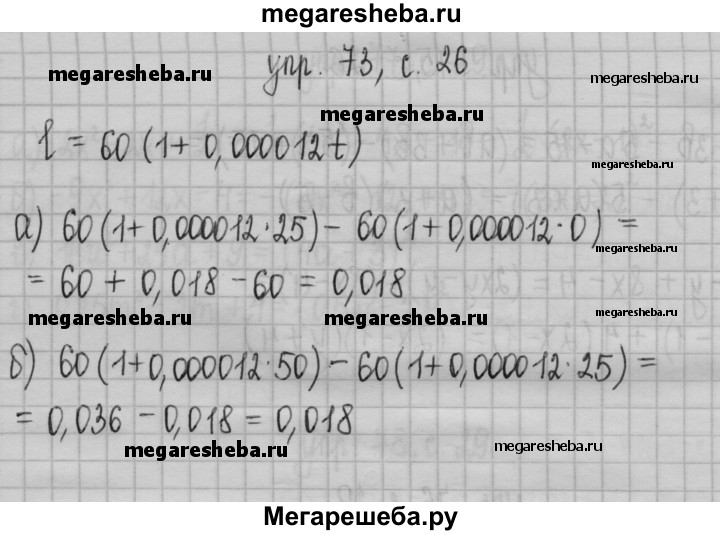 megaresheba.ru
упр. 73, с. 26
megaresheba.ru
megaresheba.ru
megaresheba.ru
l = 60 (1+ 0,000012t)
megaresheba.ru
а) 60(1+0,000012·25) - 60(1+0,000012·0) =
megaresheba.ru
= 60 + 0,018 - 60 = 0,018
megaresheba.ru
megaresheba.ru
megaresheba.ru
б) 60(1+0,000012·50) - 60(1+0,000012·25) =
= 0,036 - 0,018 = 0,018
megaresheba.ru
megaresheba.ru
Мегарешеба.ру